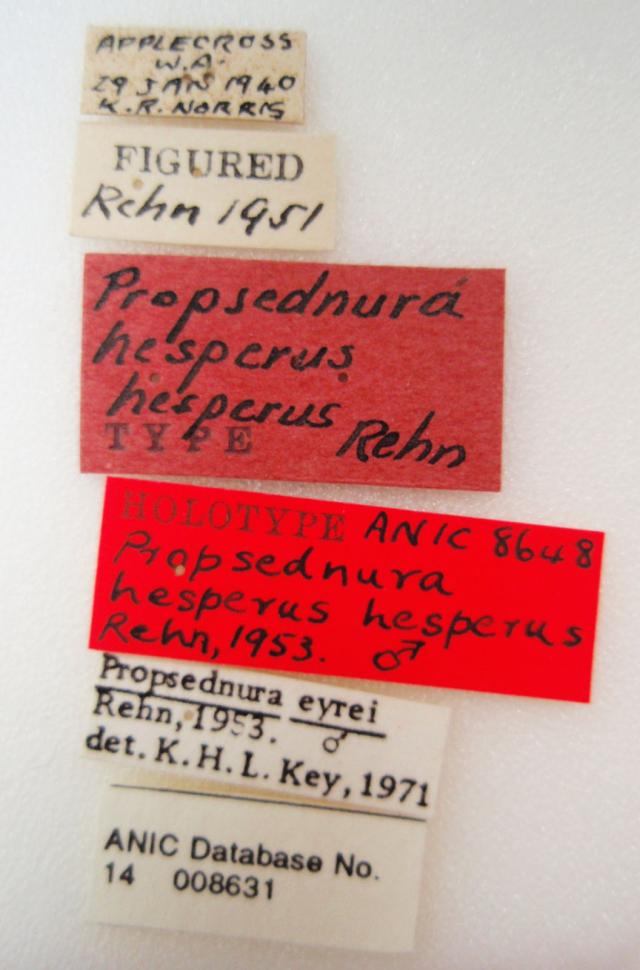 APPLECROSS
W.A.
29 JAN 1940
K.R. NORRIS
FIGURED
Rehn 1951
Propsednura
hesperus
hesperus
TYPE Rehn
HOLOTYPE ANIC 8648
Propsednura
hesperus hesperus
Rehn, 1953. ♂
Propsednura eyrei
Rehn, 1953. ♂
det. K. H. L. Key, 1971
ANIC Database No.
14 008631